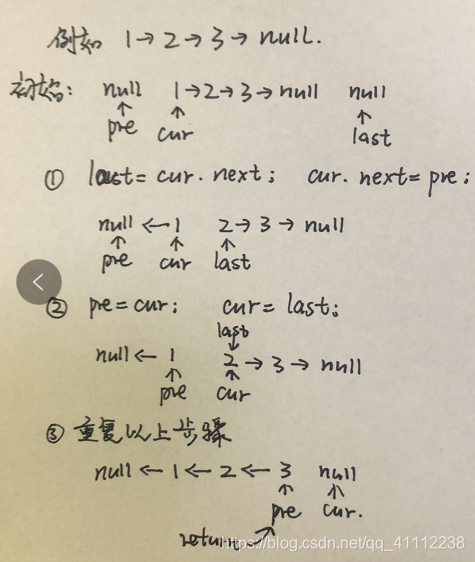 例如 1→2→3→null.
初始: null 1→2→3→null null
↑ ↑ ↑
pre cur last
① last=cur.next; cur.next=pre;
null←1 2→3→null
↑ ↑ ↑
pre cur last
② pre=cur; cur=last;
last
↓
null←1 2→3→null
↑ ↑
pre cur
③ 重复以上步骤
null←1←2←3 null
↑ ↑
pre cur.
return→
https://blog.csdn.net/qq_41112238